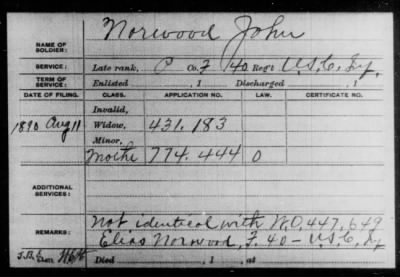 Norwood John
NAME OF SOLDIER:
SERVICE: Late rank, P Co. F 40 Reg't U.S.C. Inf.
TERM OF SERVICE: Enlisted , 1 Discharged , 1
DATE OF FILING. CLASS. APPLICATION NO. LAW. CERTIFICATE NO.
Invalid,
1890 Aug 11 Widow, 431.183
Minor,
Mothe 774.444 0
ADDITIONAL SERVICES:
REMARKS: Not identical with W.O. 447,649
Elias Norwood, F. 40 - U.S.C. Inf
Died , 1 , at